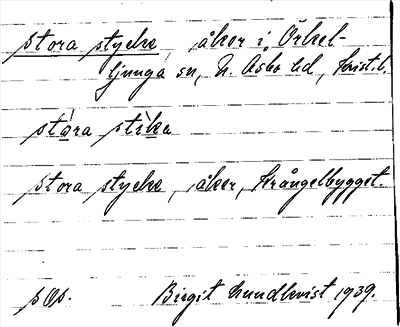 stora stycke, åker i Örkel-
ljunga sn, N. Åsbo hd, krist.l.
stòra stìke
stora stycke, åker, Strångelbygget.
Birgit Lundkvist 1939.